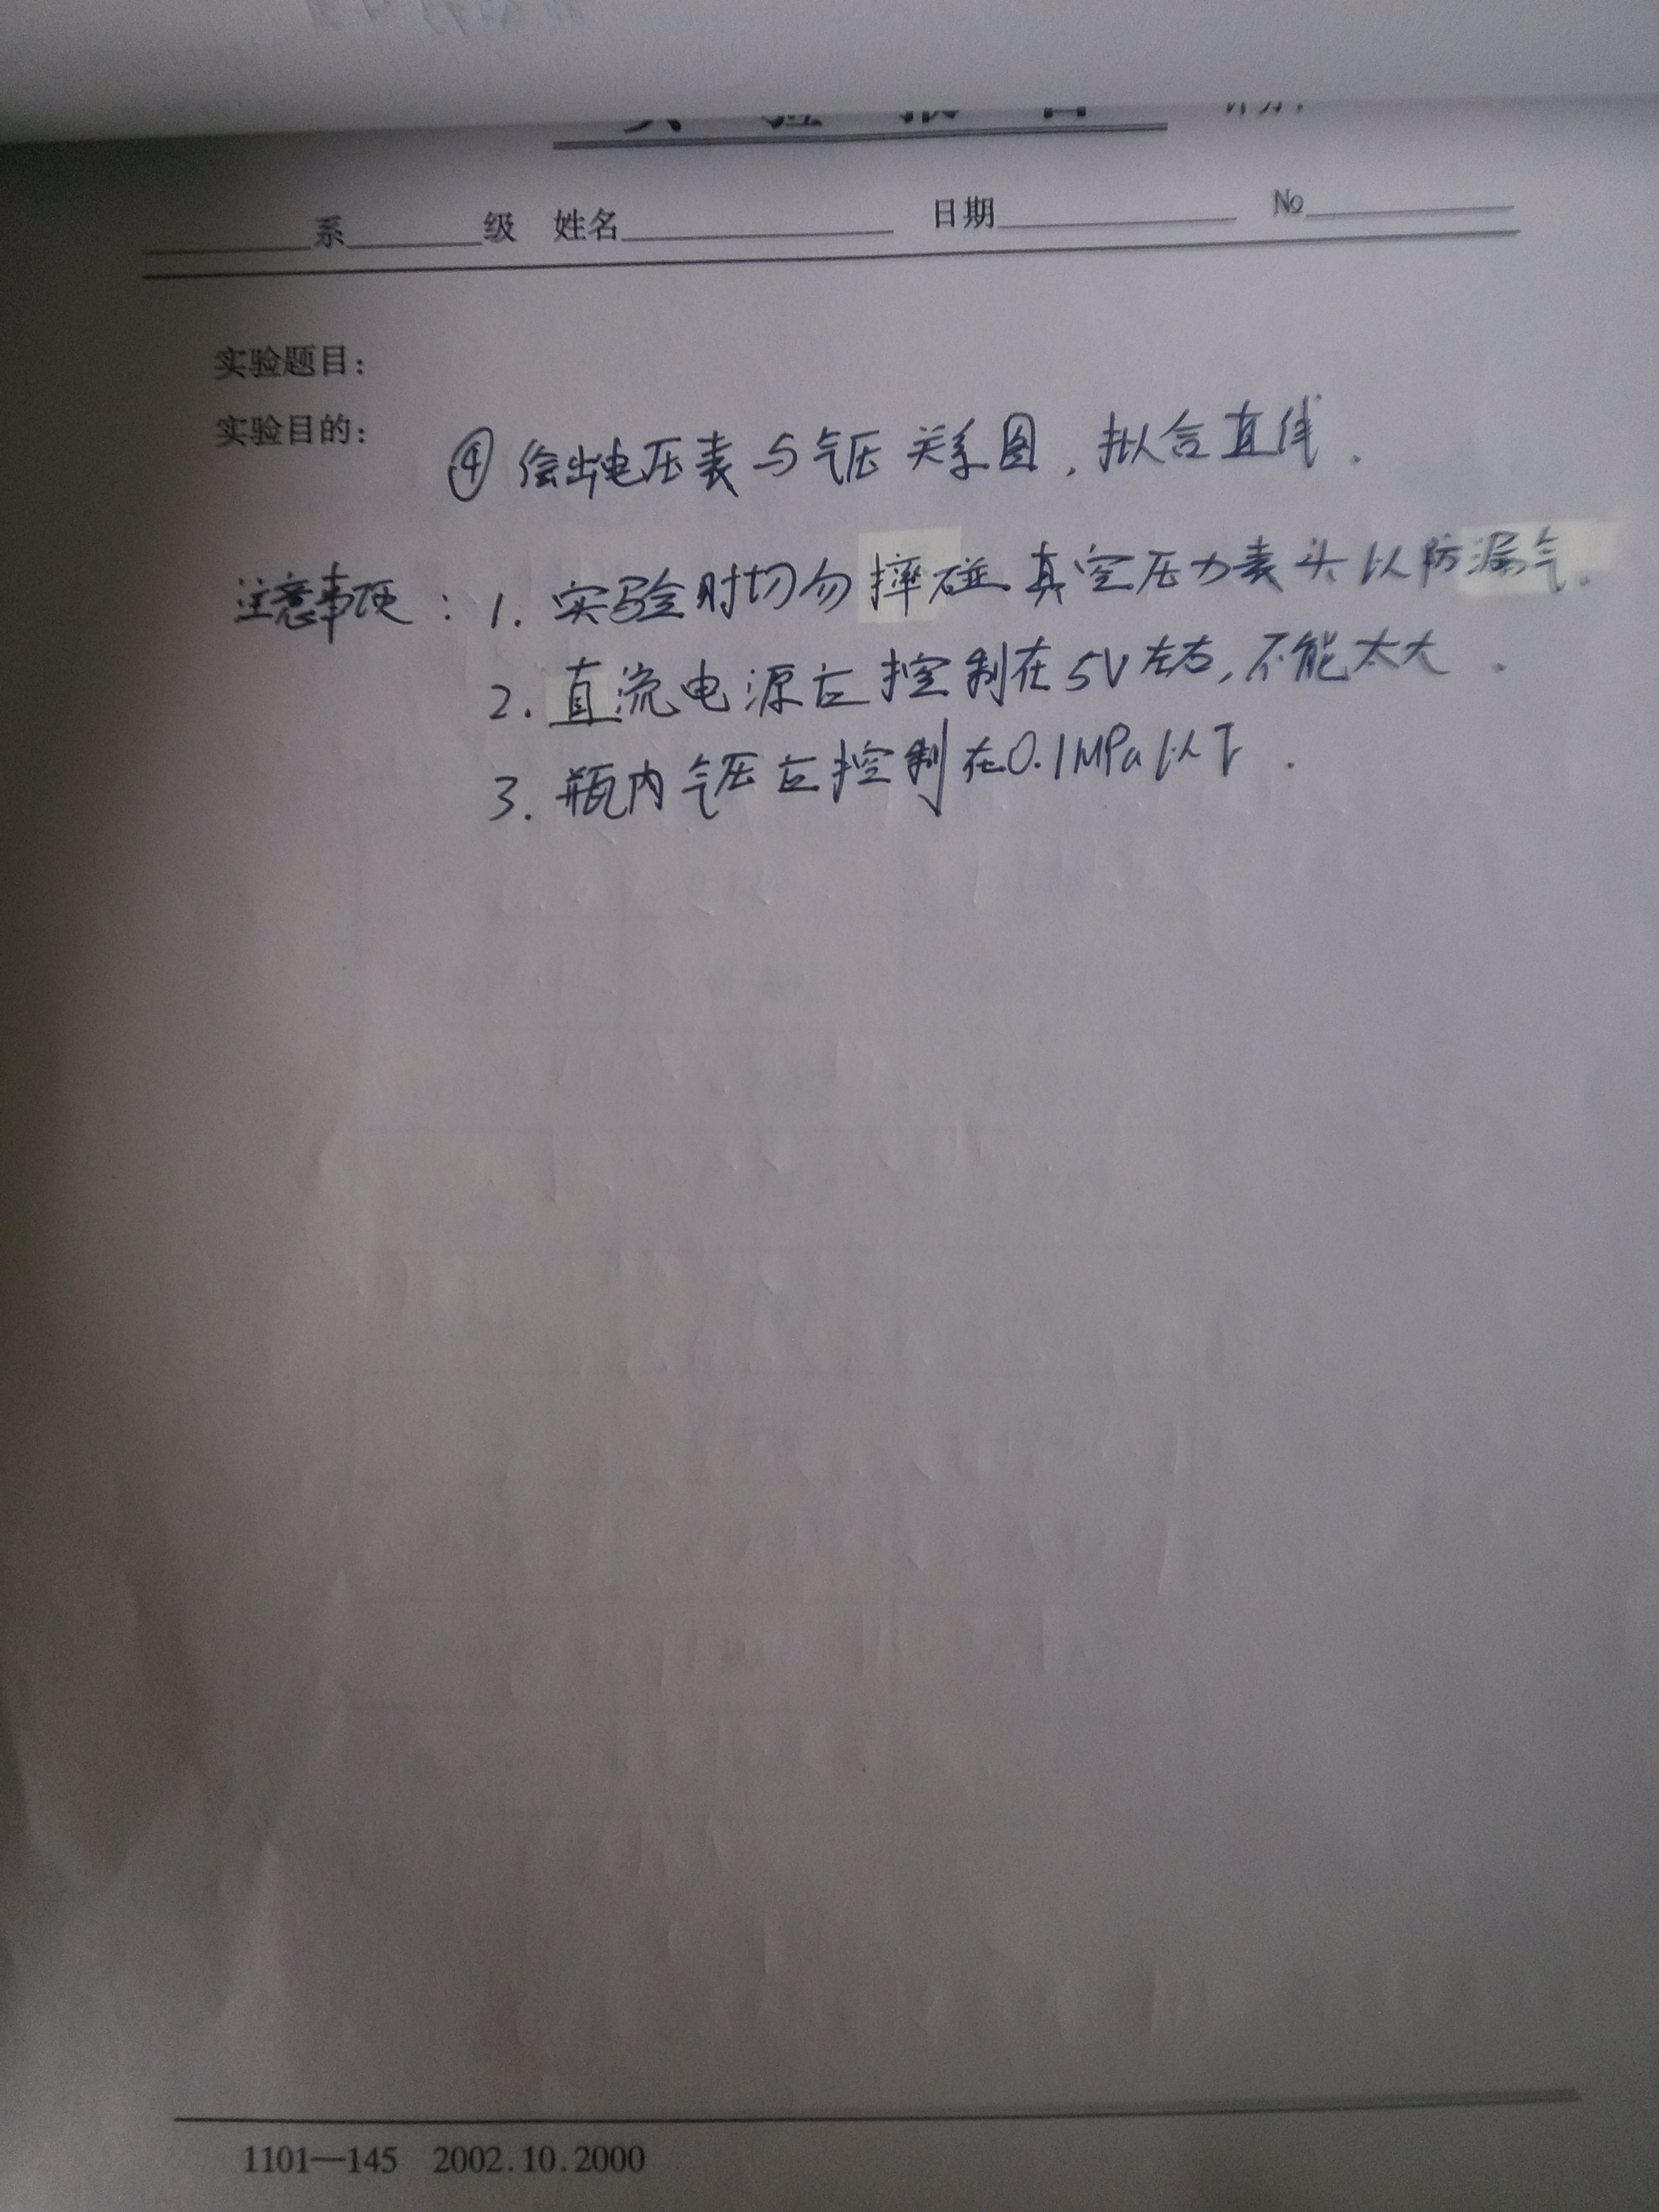 实 验 报 告 评分:
系 级 姓名 日期 No
实验题目:
实验目的:
④ 绘出电压表与气压关系图,拟合直线.
注意事项:1. 实验时切勿摔碰真空压力表头以防漏气.
2. 直流电源应控制在5V左右,不能太大.
3. 瓶内气压应控制在0.1MPa以下.
1101—145 2002.10.2000